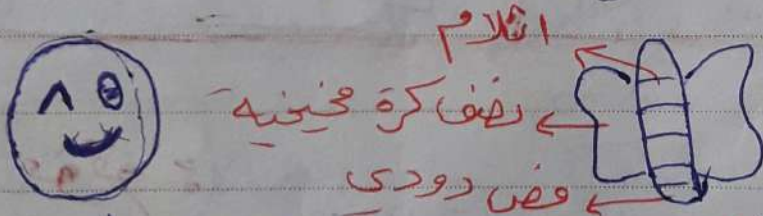 اثلام
نصف كرة مخيخية
فص دودي